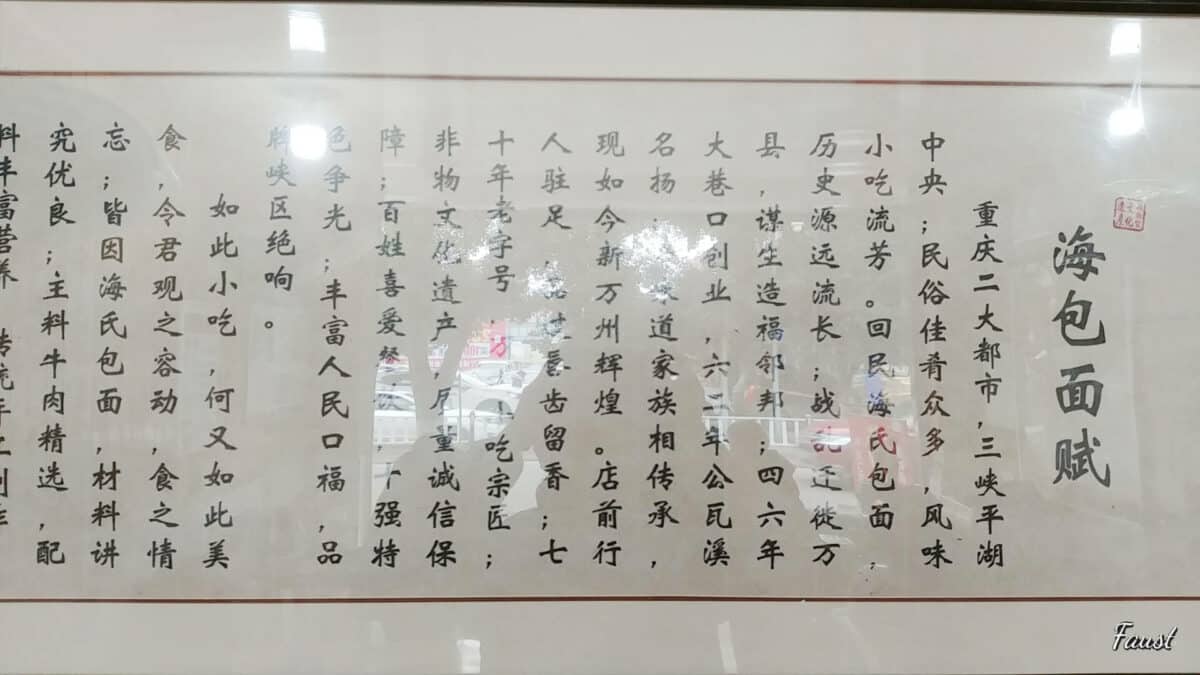 海包面赋
重庆二大都市，三峡平湖
中央；民俗佳肴众多，风味
小吃流芳。回民海氏包面，
历史源远流长；战乱迁徙万
县，谋生造福邻邦；四六年
大巷口创业，六二年公瓦溪
名扬；味道家族相传承，
现如今新万州辉煌。店前行
人驻足，唇齿留香；七
十年老字号，小吃宗匠；
非物文化遗产，质量诚信保
障；百姓喜爱餐饮，十强特
色争光；丰富人民口福，品
牌峡区绝响。
如此小吃，何又如此美
食，令君观之容动，食之情
忘；皆因海氏包面，材料讲
究优良；主料牛肉精选，配
料丰富营养
Faust